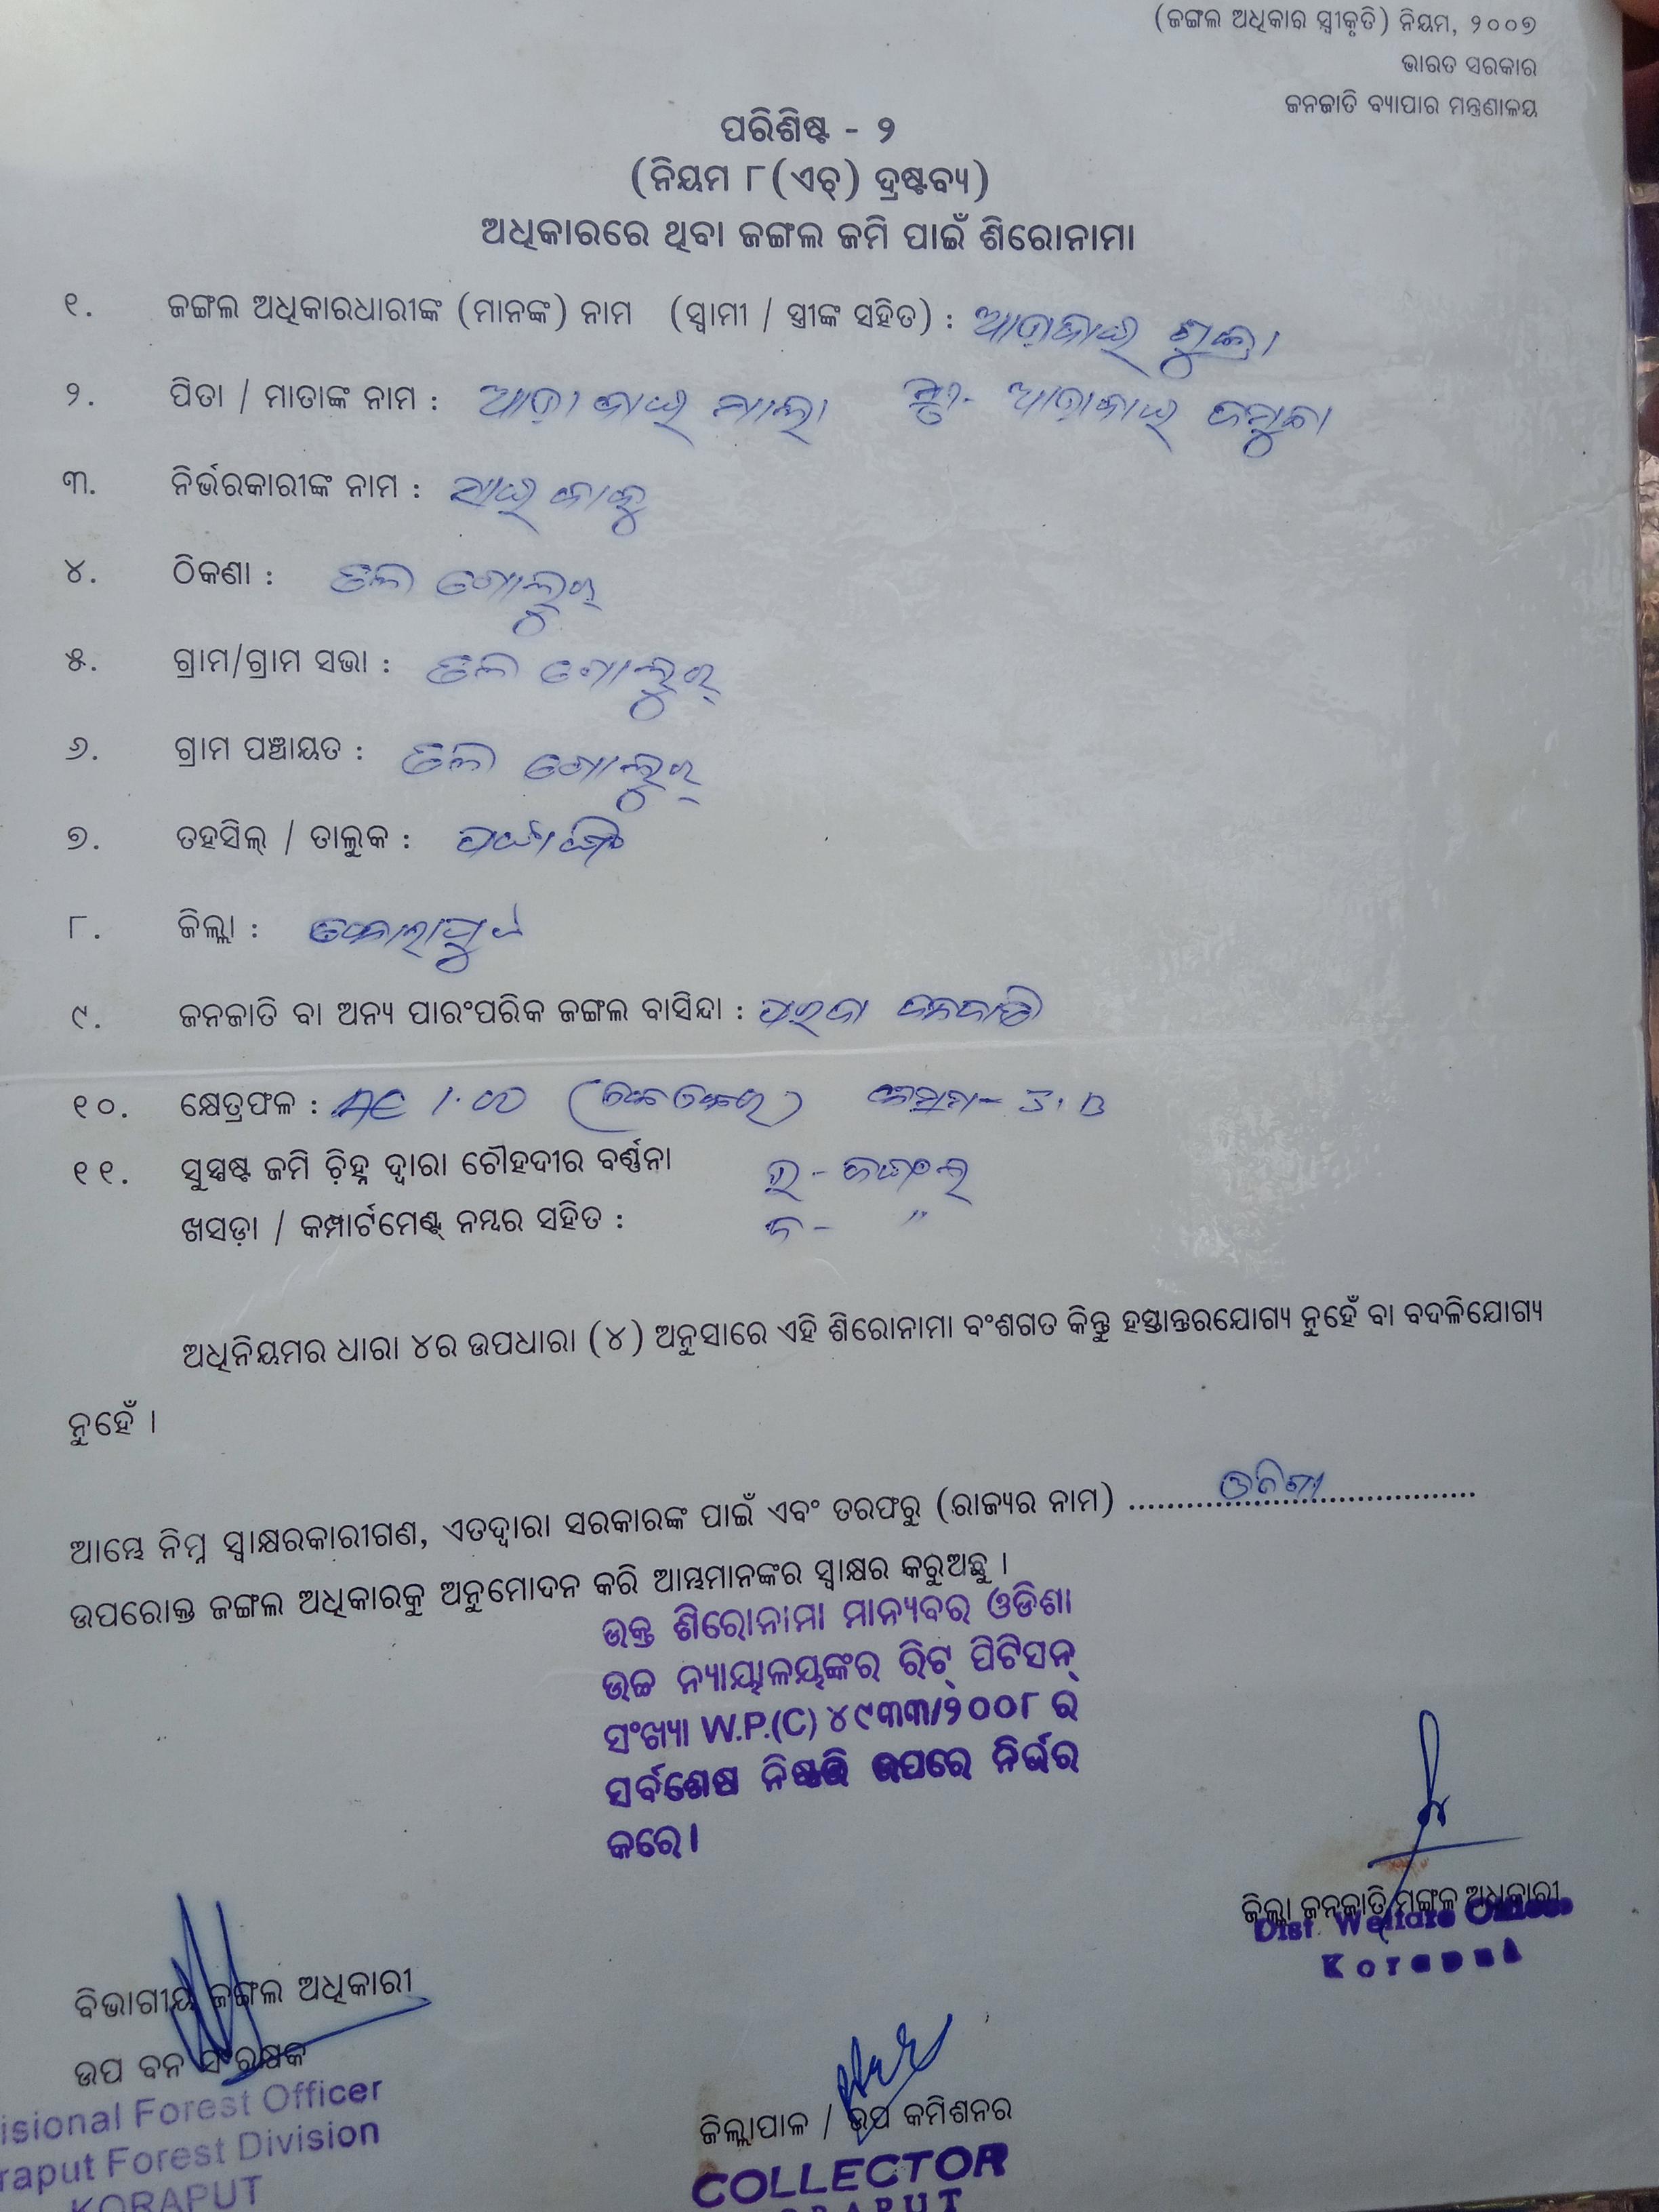 (ଜଙ୍ଗଲ ଅଧିକାର ସ୍ୱୀକୃତି) ନିୟମ, ୨୦୦୭
ଭାରତ ସରକାର
ଜନଜାତି ବ୍ୟାପାର ମନ୍ତ୍ରଣାଳୟ
ପରିଶିଷ୍ଟ - ୨
(ନିୟମ ୮(ଏଚ୍) ଦ୍ରଷ୍ଟବ୍ୟ)
ଅଧିକାରରେ ଥିବା ଜଙ୍ଗଲ ଜମି ପାଇଁ ଶିରୋନାମା
୧. ଜଙ୍ଗଲ ଅଧିକାରଧାରୀଙ୍କ (ମାନଙ୍କ) ନାମ (ସ୍ୱାମୀ / ସ୍ତ୍ରୀଙ୍କ ସହିତ) :
୨. ପିତା / ମାତାଙ୍କ ନାମ :
୩. ନିର୍ଭରକାରୀଙ୍କ ନାମ :
୪. ଠିକଣା : ତଳ ଗୋଲୁର୍
୫. ଗ୍ରାମ/ଗ୍ରାମ ସଭା : ତଳ ଗୋଲୁର୍
୬. ଗ୍ରାମ ପଞ୍ଚାୟତ : ତଳ ଗୋଲୁର୍
୭. ତହସିଲ୍ / ତାଲୁକ : ପଟାଙ୍ଗି
୮. ଜିଲ୍ଲା : କୋରାପୁଟ
୯. ଜନଜାତି ବା ଅନ୍ୟ ପାରଂପରିକ ଜଙ୍ଗଲ ବାସିନ୍ଦା : ପରଜା ଜନଜାତି
୧୦. କ୍ଷେତ୍ରଫଳ : AC 1.00 (ଏକ ଏକର)
୧୧. ସୁସ୍ପଷ୍ଟ ଜମି ଚ଼ିହ୍ନ ଦ୍ୱାରା ଚୌହଦୀର ବର୍ଣ୍ଣନା
ଖସଡ଼ା / କମ୍ପାର୍ଟମେଣ୍ଟ୍ ନମ୍ବର ସହିତ :
ଅଧିନିୟମର ଧାରା ୪ର ଉପଧାରା (୪) ଅନୁସାରେ ଏହି ଶିରୋନାମା ବଂଶଗତ କିନ୍ତୁ ହସ୍ତାନ୍ତରଯୋଗ୍ୟ ନୁହେଁ ବା ବଦଳିଯୋଗ୍ୟ
ନୁହେଁ ।
ଆମ୍ଭେ ନିମ୍ନ ସ୍ୱାକ୍ଷରକାରୀଗଣ, ଏତଦ୍ୱାରା ସରକାରଙ୍କ ପାଇଁ ଏବଂ ତରଫରୁ (ରାଜ୍ୟର ନାମ) ଓଡିଶା
ଉପରୋକ୍ତ ଜଙ୍ଗଲ ଅଧିକାରକୁ ଅନୁମୋଦନ କରି ଆମ୍ଭମାନଙ୍କର ସ୍ୱାକ୍ଷର କରୁଅଛୁ ।
ଉକ୍ତ ଶିରୋନାମା ମାନ୍ୟବର ଓଡିଶା
ଉଚ୍ଚ ନ୍ୟାୟାଳୟଙ୍କର ରିଟ୍ ପିଟିସନ୍
ସଂଖ୍ୟା W.P.(C) ୪୯୩୩/୨୦୦୮ ର
ସର୍ବଶେଷ ନିଷ୍ପତ୍ତି ଉପରେ ନିର୍ଭର
କରେ।
ଜିଲ୍ଲା ଜନଜାତି ମଙ୍ଗଳ ଅଧିକାରୀ
Dist Welfare Officer
Koraput
ବିଭାଗୀୟ ଜଙ୍ଗଲ ଅଧିକାରୀ
ଉପ ବନ ସଂରକ୍ଷକ
isional Forest Officer
raput Forest Division
KORAPUT
ଜିଲ୍ଲାପାଳ / ଉପ କମିଶନର
COLLECTOR